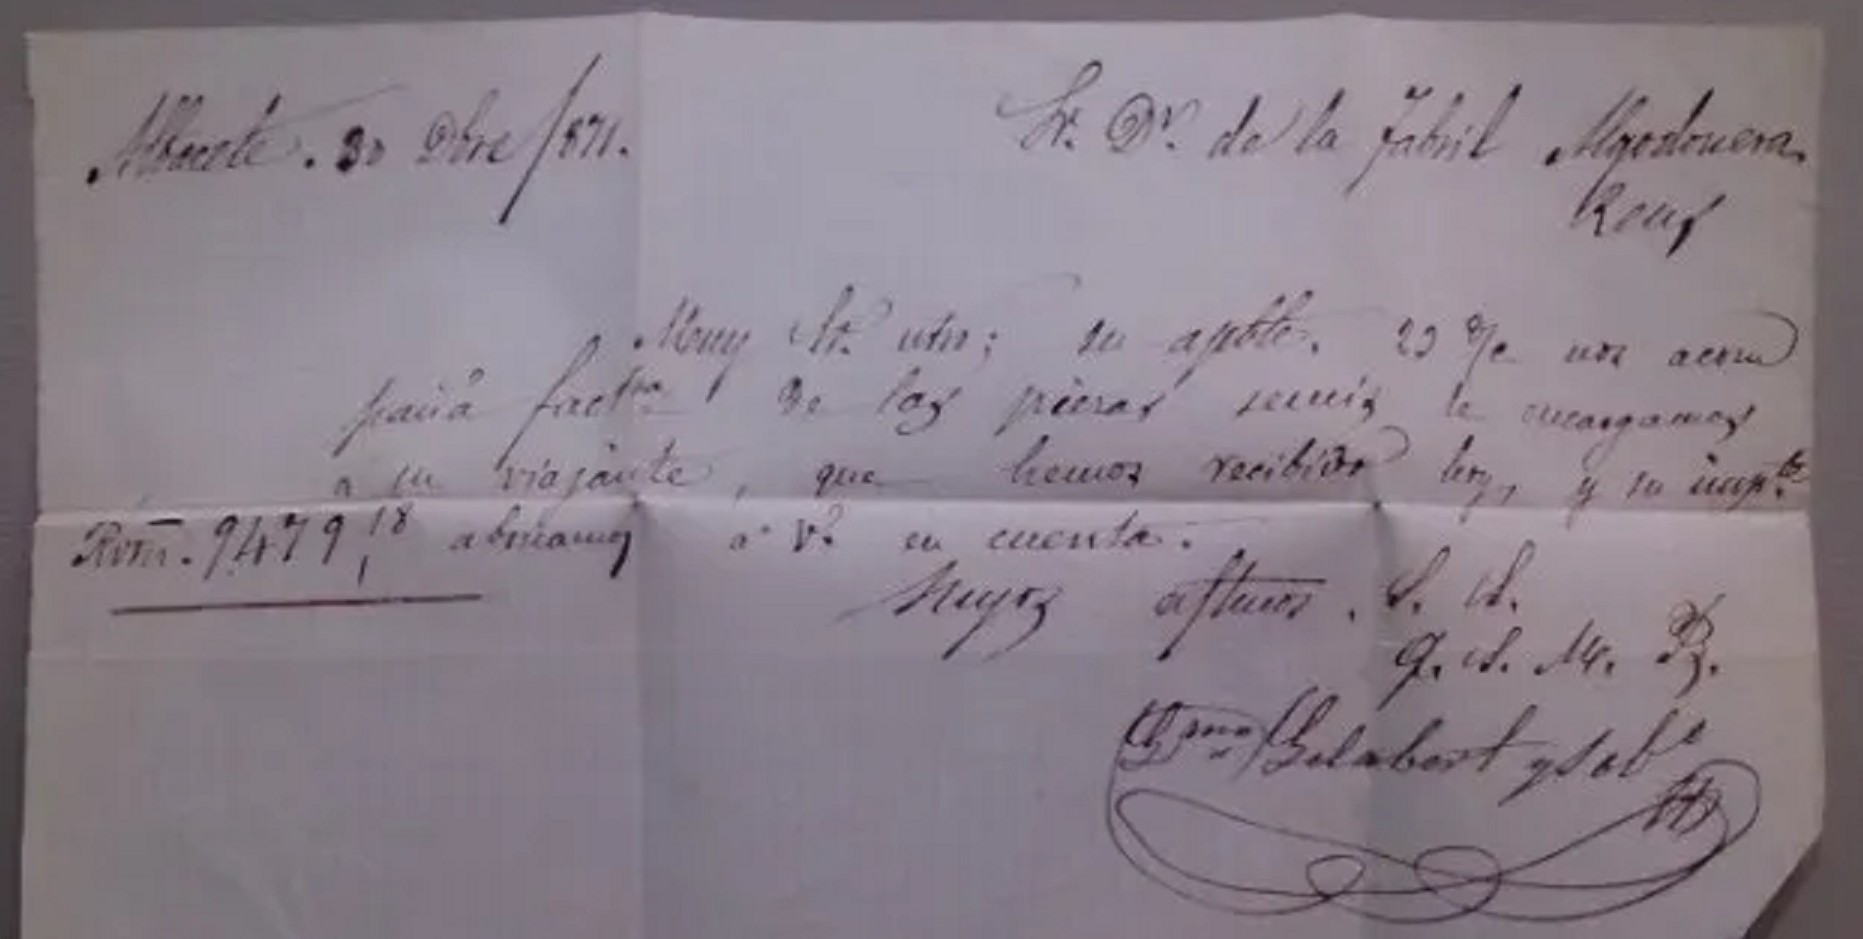 Albacete. 30 Dbre/871.
Sr. Dr. de la Fabril Algodonera.
Reus
Muy Sr. ntro; su apble. 23 % nos acom
paña factra de las piezas semis le encargamos
a su viajante, que hemos recibido hoy, y su impte
Rvon. 9479,18 abonamos á V. en cuenta.
Suyos aftmos. S. S.
Q. S. M. B.
Gelabert y Sobo